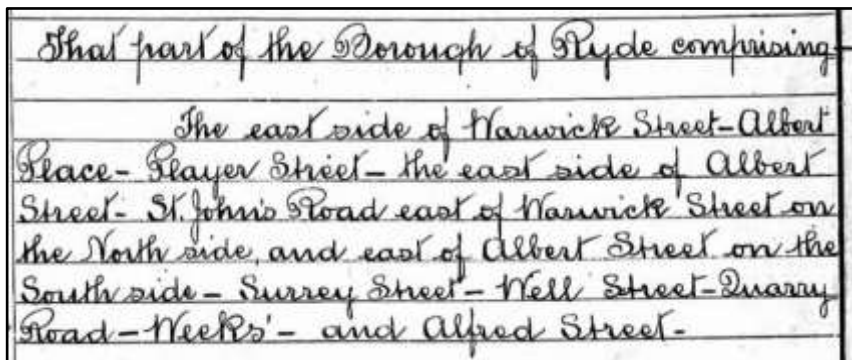 That part of the Borough of Ryde comprising-
The east side of Warwick Street-Albert
Place- Player Street- the east side of Albert
Street- St. John's Road east of Warwick Street on
the North side, and east of Albert Street on the
South side- Surrey Street- Well Street-Quarry
Road-Weeks'- and Alfred Street-